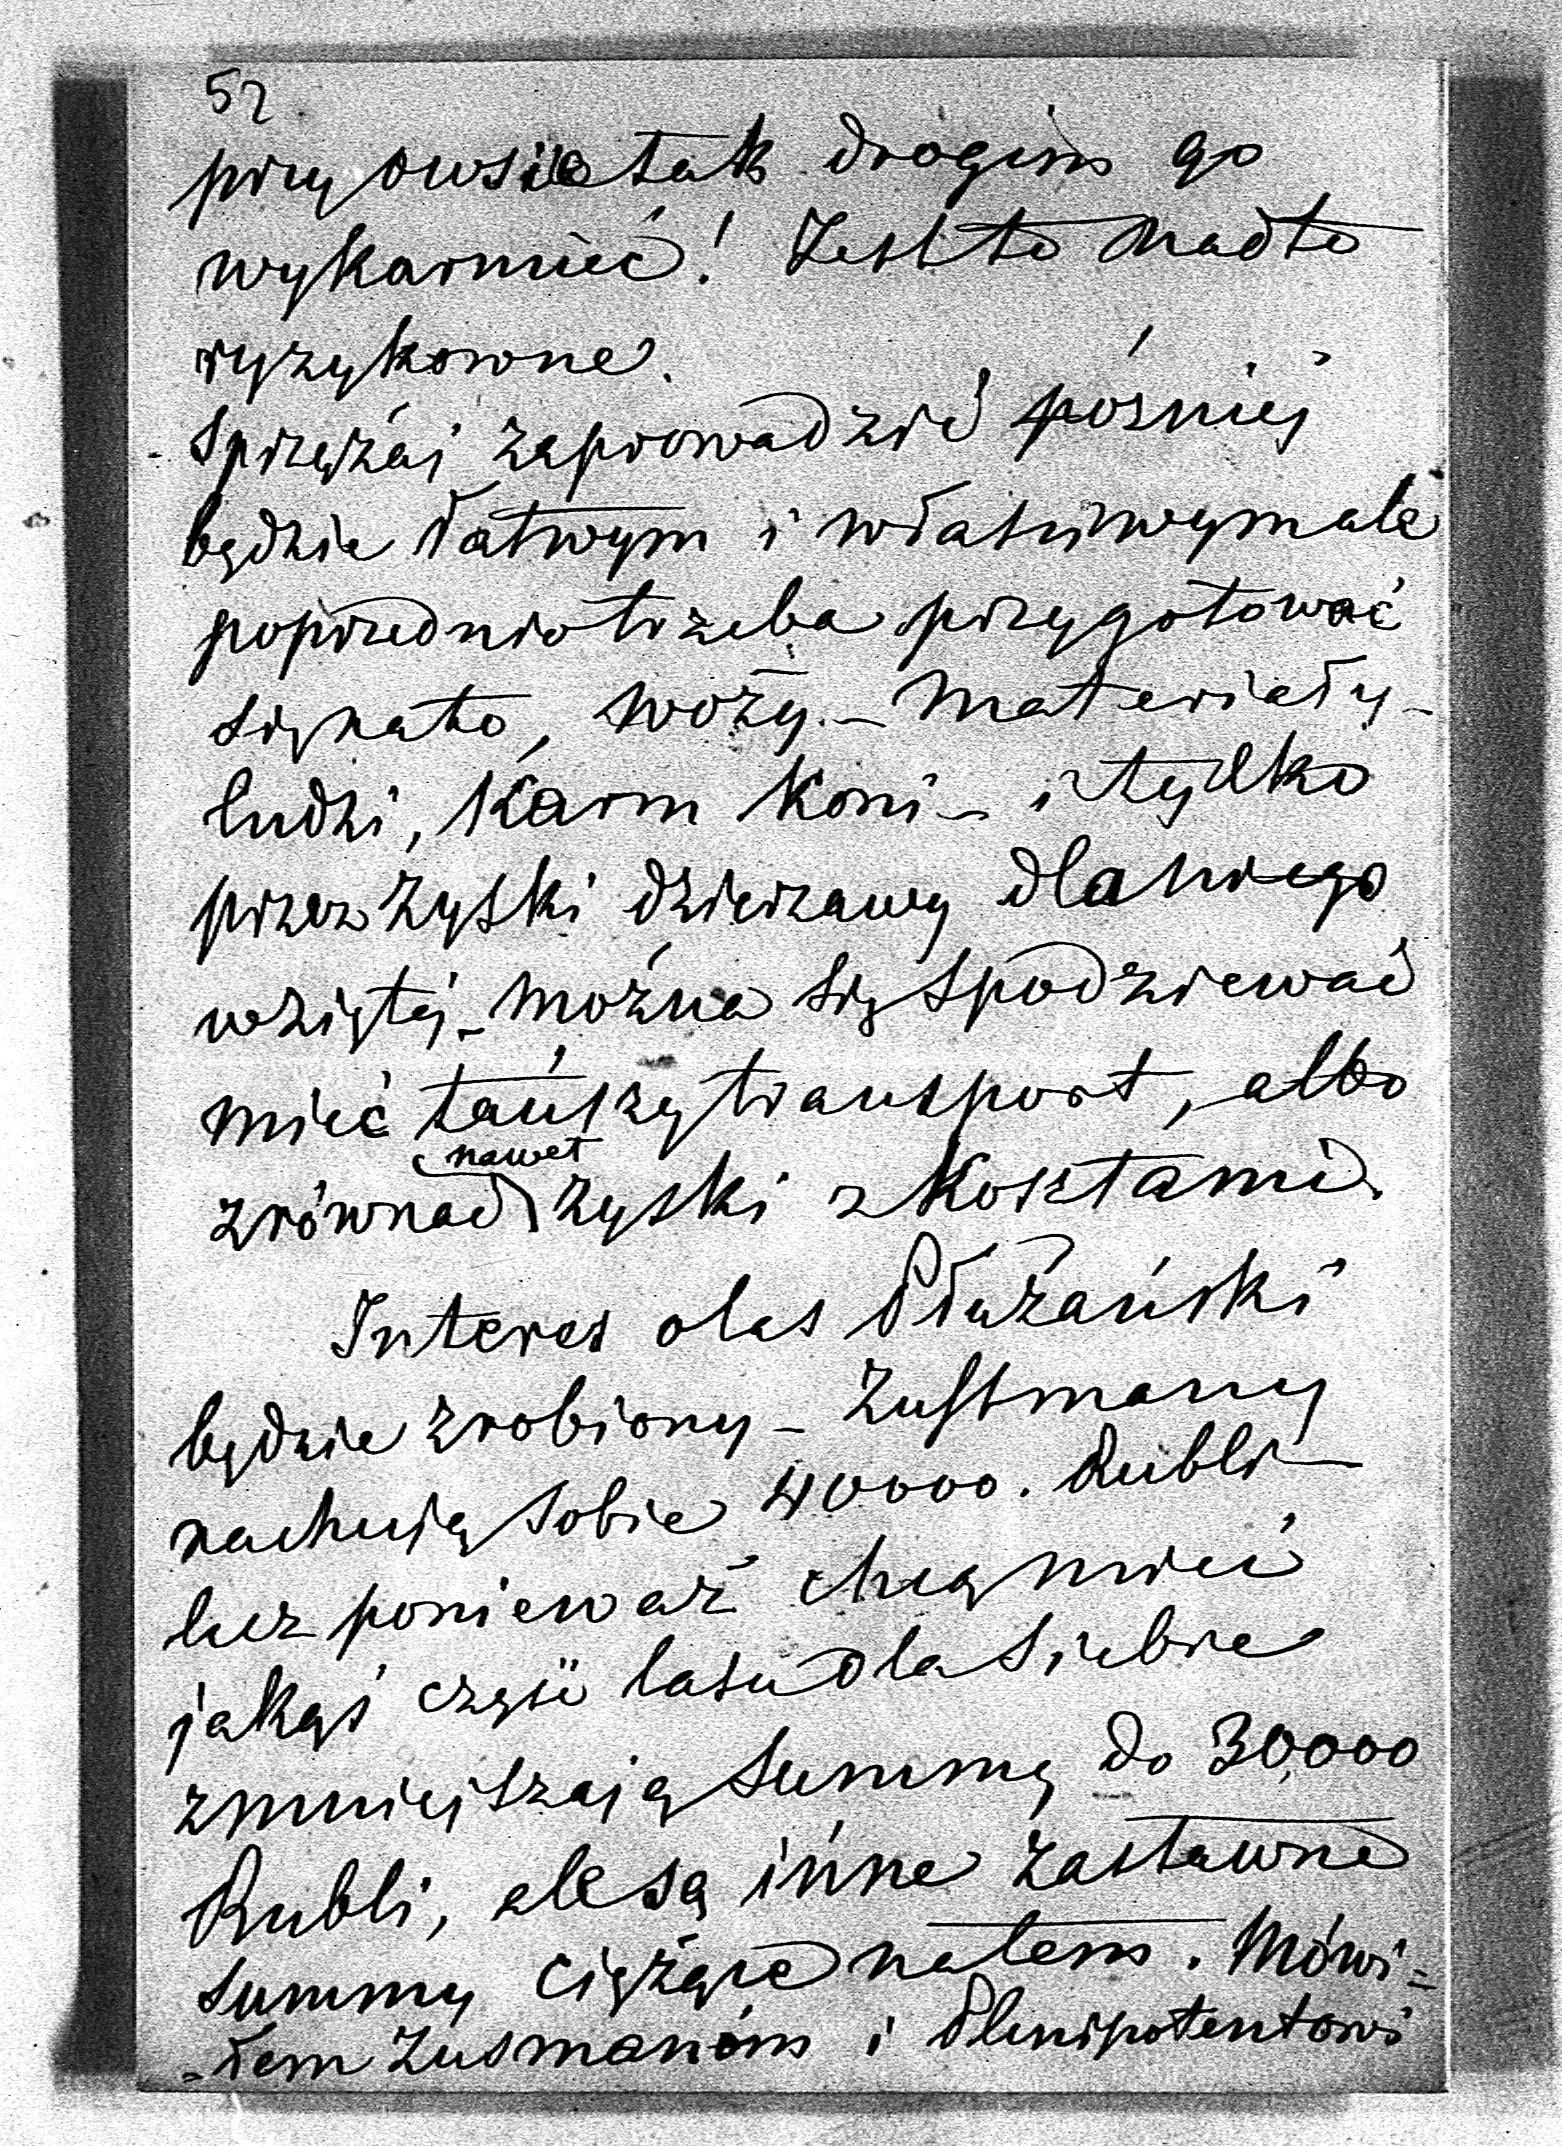 52
przy owsie tak drogim go
wykarmieć! Jest to nadto
ryzykowne.
Sprzężaj zaprowadzić pośniej
będzie łatwym i właściwym ale
poprzednio trzeba przygotować
się na to, wozy – materiały –
ludzi, karm koni – i tylko
przez zyski dzierzawy dla niego
wziętéj – można się spodziewać
mieć tańszy transport, albo
nawet
zrównać zyski z kosztami.
Interes o las Płużański
będzie zrobiony – Zussmany
rachują sobie 40000. Rubli –
lecz ponieważ chcą mieć
jakąś część lasu dla siebie
zmniejszają summę do 30,000
Rubli, ale są inne zastawne
summy ciężące na tem. Mówi=
=łem Zusmanom i Plenipotentowi